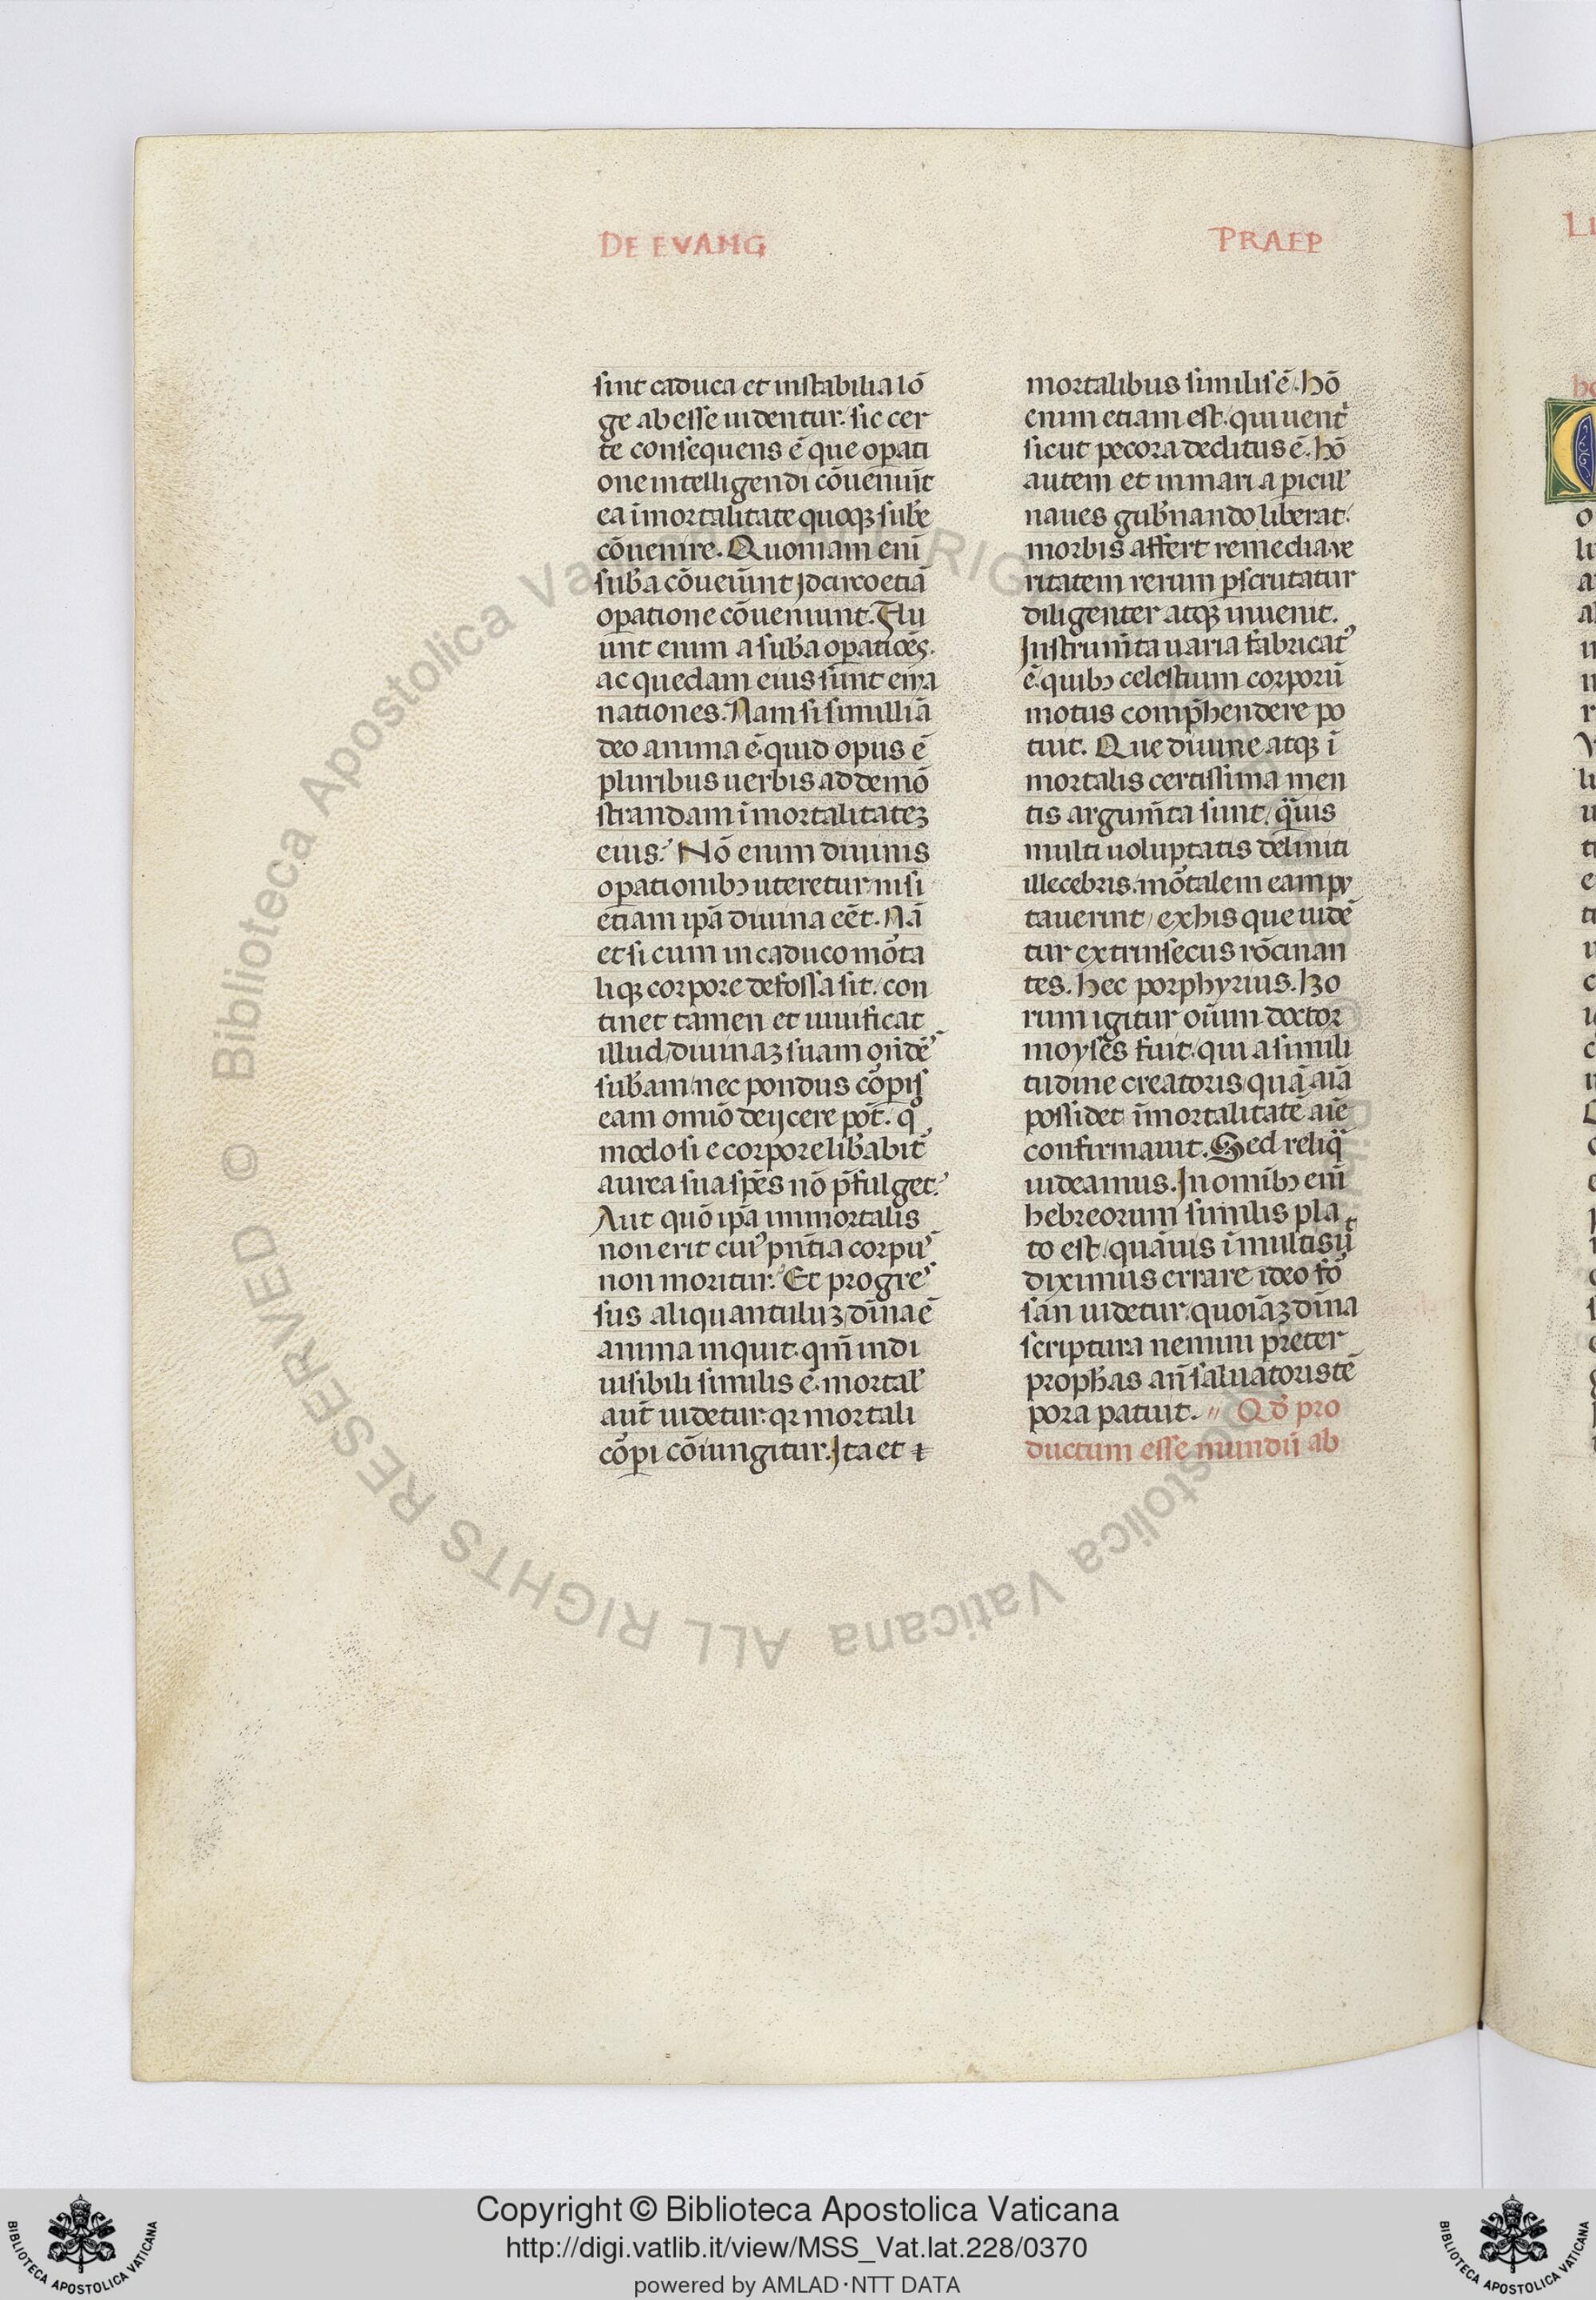 DE EVANG
PRAEP
sint caduca et instabilia lō
ge ab esse uidentur. sic cer
te consequens ē que opati
one intelligendi cōueniūt
ea īmortalitate quoqꝫ sub̄e
cōuenire. Quoniam enī
sub̄a cōueiūnt jdcirco etiā
opatione cōueniunt. Flu
unt enim a sub̄a opatiōēs.
ac quedam eius sunt ema
nationes. Nam si simillīa
deo anima ē. quid opus ē
pluribus uerbis ad demō
strandam īmortalitateꝫ
eius. Nō enim diuinis
opationibꝫ uteretur nisi
etiam ip̄a diuina eēt. Nā
et si cum in caduco mōta
liqꝫ corpore defossa sit. con
tinet tamen et uiuificat
illud, diuinaꝫ suam on̄dēs
sub̄am nec pondus cōpis
eam omīo deijcere pōt. qͦ
modo si e corpore lib̄abit̄
aurea sua spēs nō p̄fulget.
Aut quō ip̄a immortalis
non erit cuiꝰ pn̄tia corpus
non moritur. Et progres
sus aliquantuluꝫ, diīna ē
anima inquit. qm̄ indi
uisibili similis ē. mortal'
aut̄ uidetur. qꝛ mortali
cōpi cōiungitur. Ita et ī
mortalibus similis ē. Hō
enim etiam est. qui uentī
sicut pecora deditus ē. Hō
autem et in mari a picul'
naues gub̄nando liberat.
morbis affert remedia. ve
ritatem rerum pscrutatur
diligenter atqꝫ inuenit.
Instrum̄ta uaria fabricatꝰ
ē. quibꝫ celestium corporū
motus comp̄hendere po
tuit. Que diuine atqꝫ ī
mortalis certissima men
tis argum̄ta sunt. q̄uis
multi uoluptatis deliniti
illecebris. mōtalem eam pu
tauerint, ex his que uidē
tur extrinsecus rōcinan
tes. Hec porphyrius. Ho
rum igitur oīum doctor
moyses fuit. qui a simili
tudine creatoris quā aīa
possidet īmortalitatē aīe
confirmauit. Sed reliq̄
uideamus. In omībꝫ enī
hebreorum similis pla
to est. quāuis ī multis ut
diximus errare ideo fo
san uidetur. quoīaꝫ diīna
scriptura nemini preter
proph̄as an̄ saluatoris tē
pora patuit. Qd̄ pro
ductum esse mundū ab
Copyright © Biblioteca Apostolica Vaticana
http://digi.vatlib.it/view/MSS_Vat.lat.228/0370
powered by AMLAD·NTT DATA